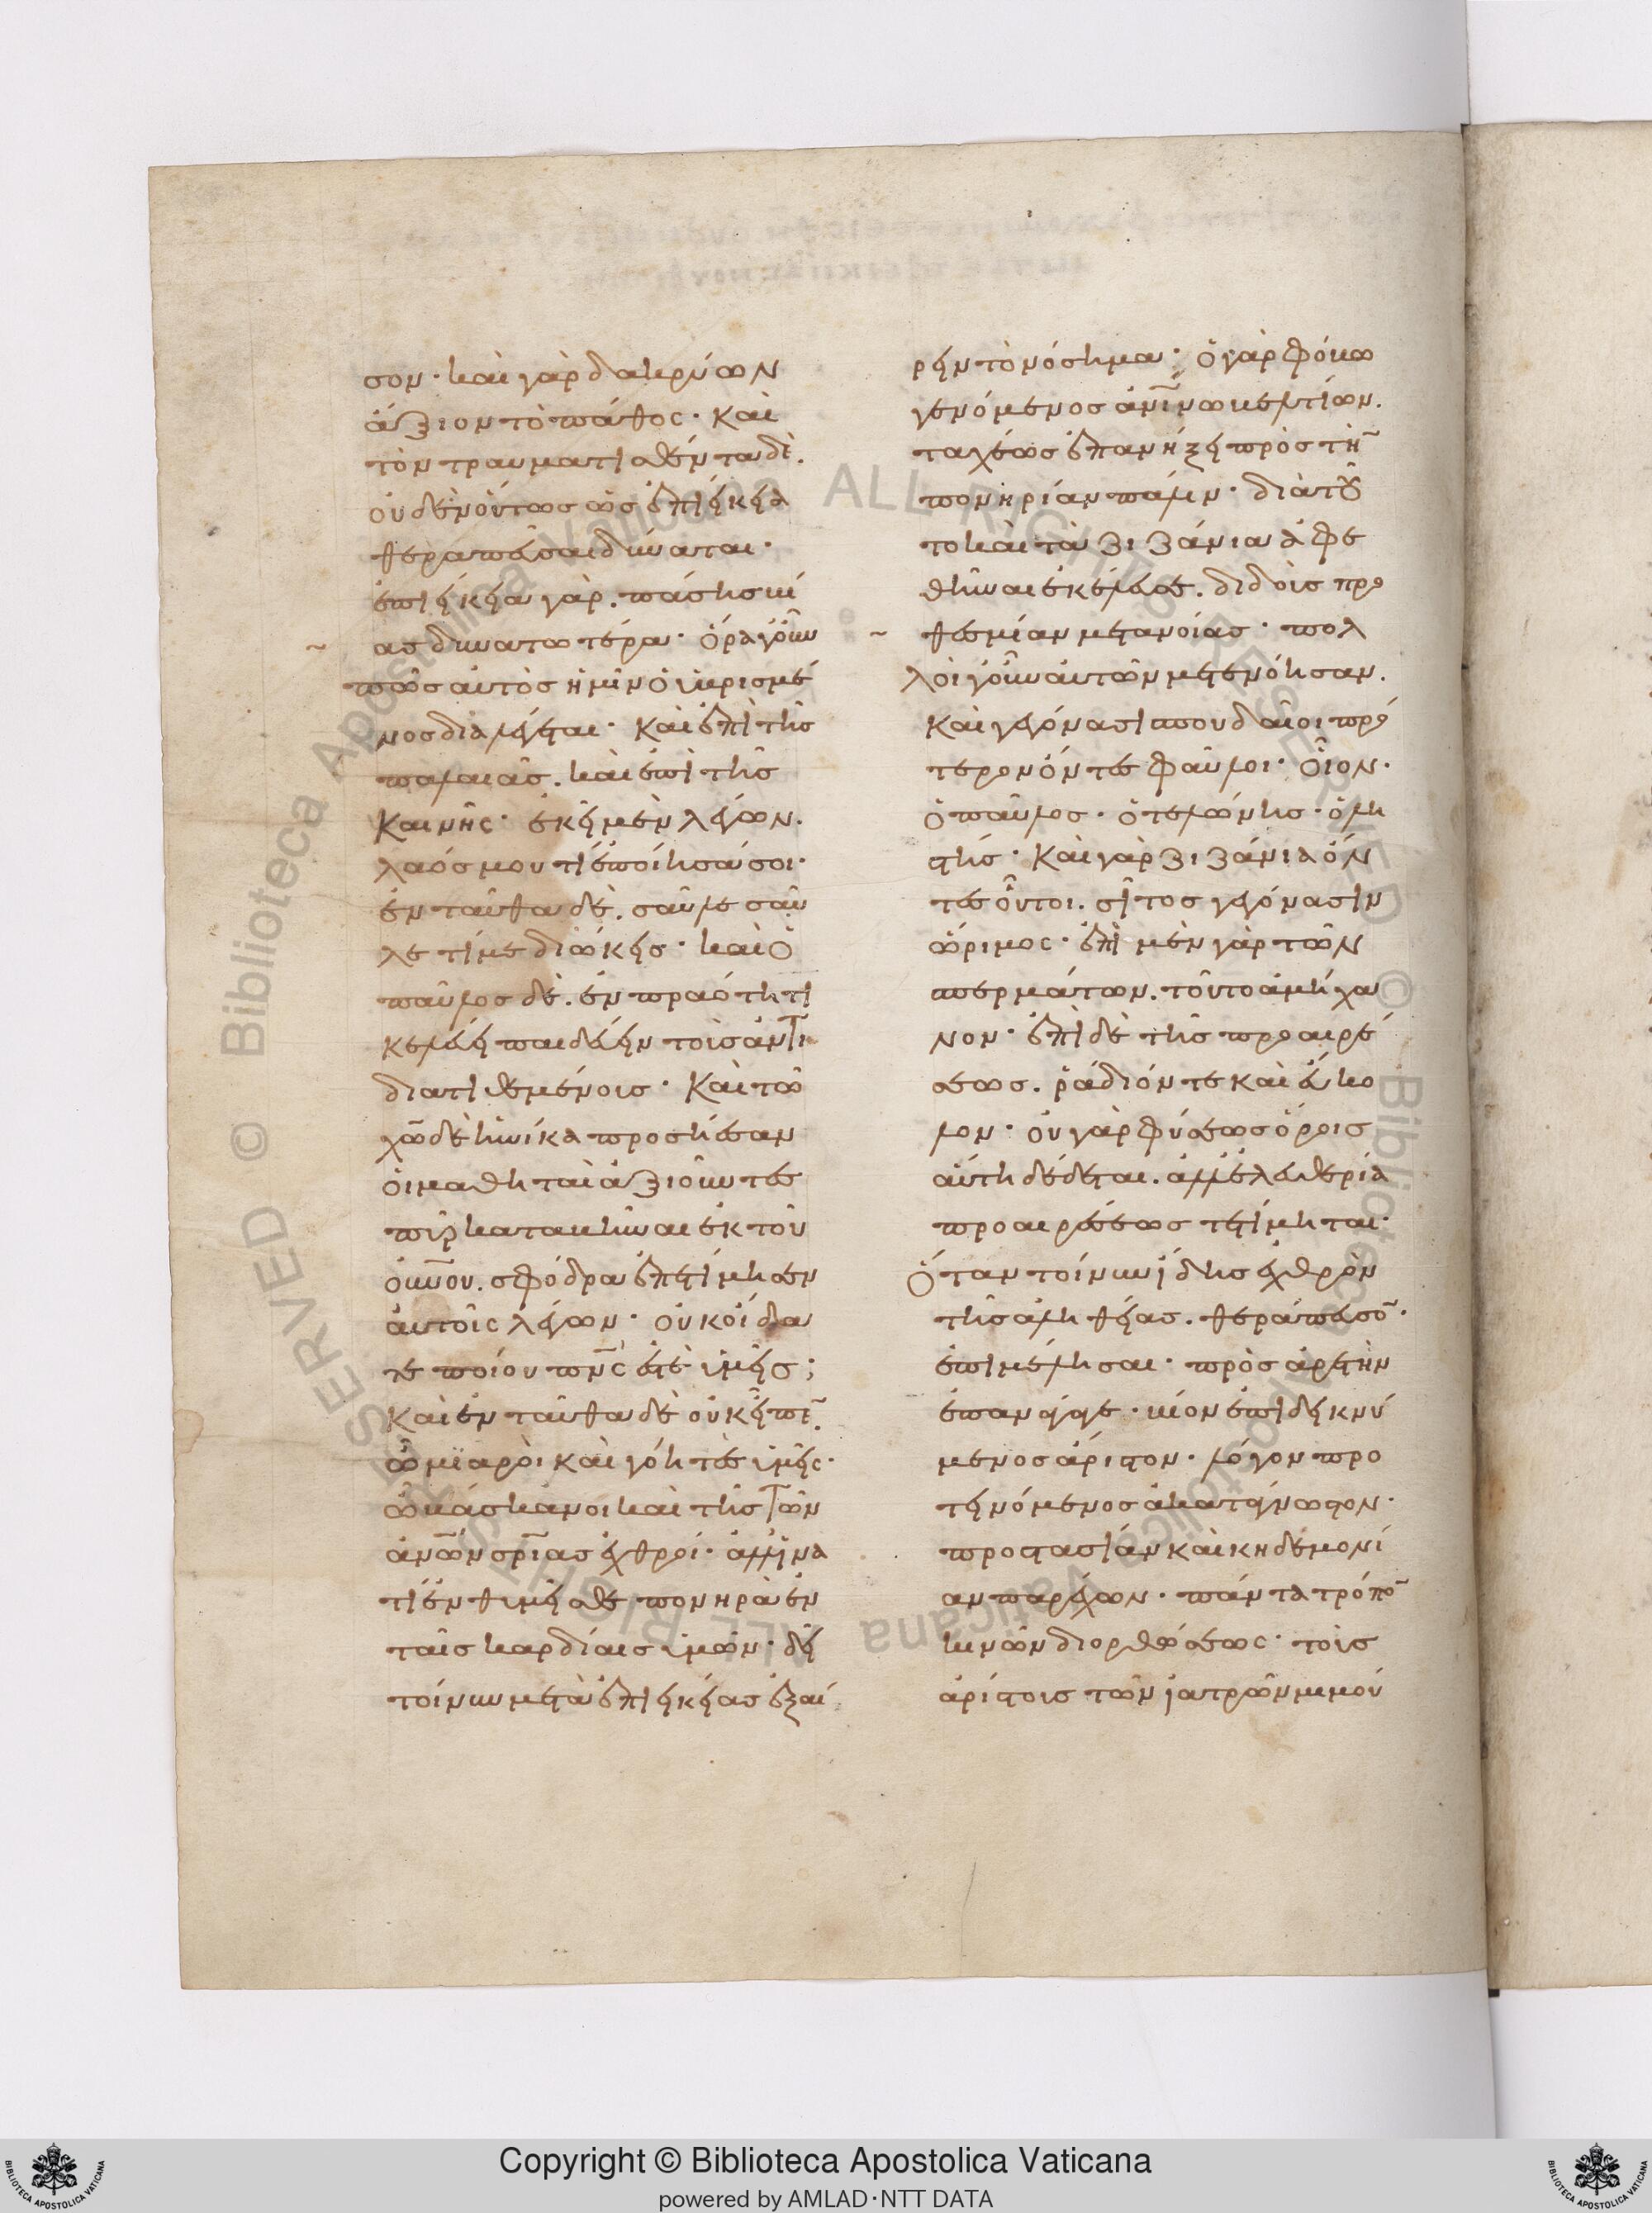 σον· καὶ γὰρ δακρύων
ἄξιον τὸ πάθος· καὶ
τὸν τραυματισθέντα δὲ.
οὐδὲν ὄντως ὡς ἐπιείκεια
θεραπεῦσαι δύναται·
ἐπιείκεια γὰρ. πάσης βί
ας δυνατωτέρα· ὅρα γοῦν
πῶς αὐτὸς ἡμῖν ὁ ὑβρισμέ
νος διαλέγεται· καὶ ἐπὶ τῆς
παλαιᾶς. καὶ ἐπὶ τῆς
καινῆς· ἐκεῖ μὲν λέγων.
λαός μου τί ἐποίησά σοι·
ἐνταῦθα δέ. σαῦλε σαῦ
λε τί με διώκεις· καὶ ὁ
παῦλος δὲ. ἐν πραότητι
κελεύει παιδεύειν τοὺς ἀντι
διατιθεμένους· καὶ τῶ
χῶ δὲ ἡνίκα προσήεσαν
οἱ μαθηταὶ ἀξιοῦντες
πῦρ καταβῆναι ἐκ τοῦ
οὐνοῦ. σφόδρα ἐπετίμησεν
αὐτοῖς λέγων· οὐκ οἴδα
τε ποίου πνς ἐστὲ ὑμεῖς;
καὶ ἐνταῦθα δὲ οὐκ εἶπε.
ὦ μιαροὶ καὶ γόητες ὑμεῖς·
ὦ βάσκανοι καὶ τῆς τῶν
ἀνῶν σρίας ἐχθροί· ἀλλ' ἵνα
τί ἐνθυμεῖσθε πονηρὰ ἐν
ταῖς καρδίαις ὑμῶν· δεῖ
τοίνυν μετὰ ἐπιεικείας ἐξαί
ρειν τὸ νόσημα· ὁ γὰρ φόβω
γενόμενος ἀνίνω βελτίων.
ταχέως ἐπανήξει πρὸς τὴν
πονηρίαν πάλιν· διὰ τοῦ
το καὶ τὰ ζιζάνια ἀφε
θῆναι ἐκέλευσε. διδοὺς προ
θεσμίαν μετανοίας· πολ
λοὶ γοῦν αὐτῶν μετενόησαν.
καὶ γεγόνασι σπουδαῖοι πρό
τερον ὄντες φαῦλοι· οἷον.
ὁ παῦλος· ὁ τελώνης· ὁ λη
στής· καὶ γὰρ ζιζάνια ὄν
τες οὗτοι. σῖτος γεγόνασιν
ὥριμος· ἐπὶ μὲν γὰρ τῶν
σπερμάτων. τοῦτο ἀμήχα
νον· ἐπὶ δὲ τῆς προαιρέ
σεως. ῥάδιόν τε καὶ εὔκο
λον· οὐ γὰρ φύσεως ὅροις
αὕτη δέδεται. ἀλλ' ἐλευθερία
προαιρέσεως τετίμηται·
Ὅταν τοίνυν ἴδης ἐχθρὸν
τῆς ἀληθείας. θεράπευσον·
ἐπιμέλησαι· πρὸς ἀρετὴν
ἐπανάγαγε· βίον ἐπιδεικνύ
μενος ἄριστον· λόγον προ
τεινόμενος ἀκατάγνωστον·
προστασίαν καὶ κηδεμονί
αν παρέχων· πάντα τρόπον
κινῶν διορθώσεως· τοὺς
ἀρίστους τῶν ἰατρῶν μιμού
Copyright © Biblioteca Apostolica Vaticana
powered by AMLAD·NTT DATA